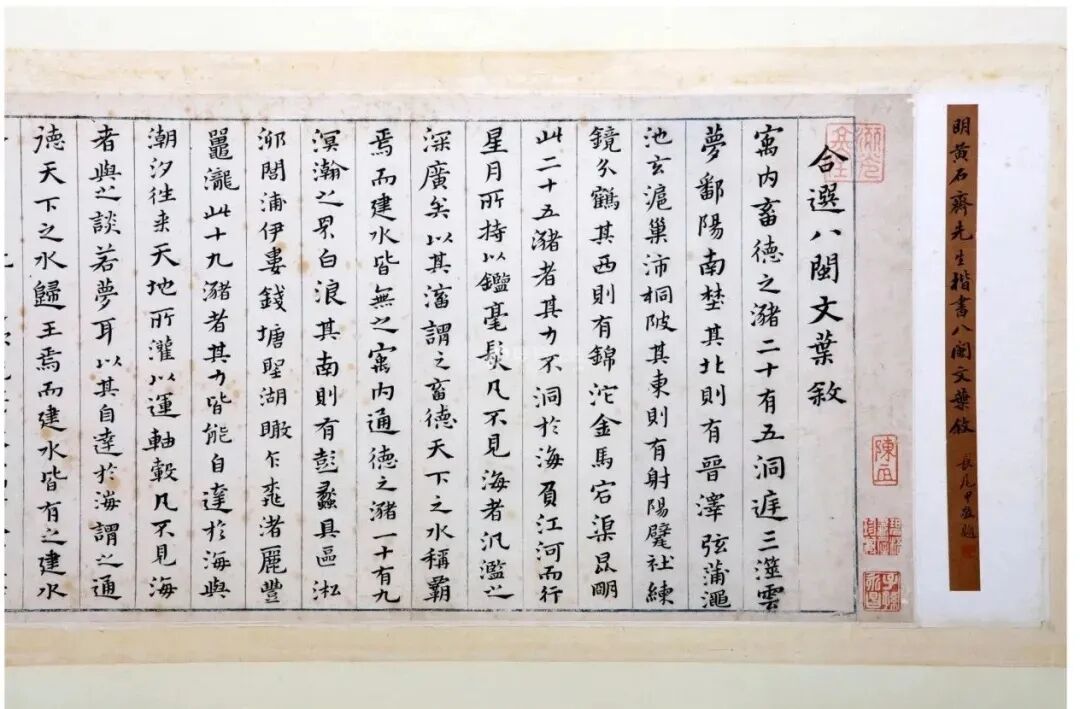 明黃石齋先生楷書八閩文葉敘
合選八閩文葉敘
寓内畜德之瀦二十有五洞庭三澨雲
夢鄱陽南埜其北則有晉澤弦蒲澠
池玄滬巢沛桐陂其東則有射陽甓社練
鏡分鶴其西則有錦沱金馬宕渠昆明
此二十五瀦者其力不洞於海負江河而行
星月所持以鑑毫髮凡不見海者汎濫之
深廣矣以其瀋謂之畜德天下之水稱霸
焉而建水皆無之寓内通德之瀦一十有九
溟瀚之界白浪其南則有彭蠡具區淞
泖閤浦伊婁錢塘聖湖瞰乍桃渚麗豐
鼉瀧此十九瀦者其力皆能自達於海與
潮汐徃来天地所灌以運軸轂凡不見海
者與之談若夢耳以其自達於海謂之通
德天下之水歸王焉而建水皆有之建水